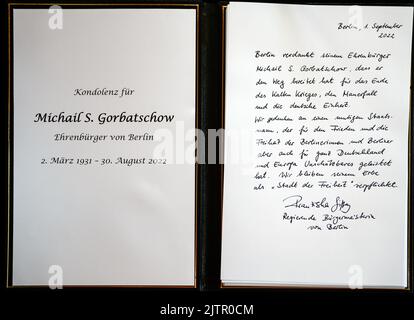 Kondolenz für
Michail S. Gorbatschow
Ehrenbürger von Berlin
2. März 1931 – 30. August 2022
Berlin, 1. September
2022
Berlin verdankt seinem Ehrenbürger
Michail S. Gorbatschow, dass er
den Weg bereitet hat für das Ende
des Kalten Krieges, den Mauerfall
und die deutsche Einheit.
Wir gedenken an einen mutigen Staats-
mann, der für den Frieden und die
Freiheit der Berlinerinnen und Berliner
aber auch für ganz Deutschland
und Europa Unschätzbares geleistet
hat. Wir bleiben seinem Erbe
als „Stadt der Freiheit" verpflichtet.
Franziska Giffey
Regierende Bürgermeisterin
von Berlin
alamy